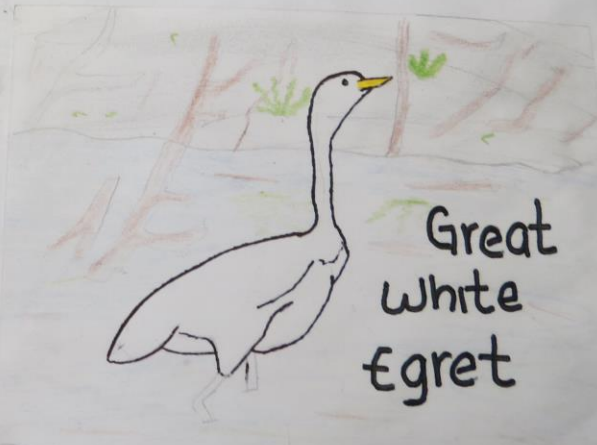 Great
White
Egret